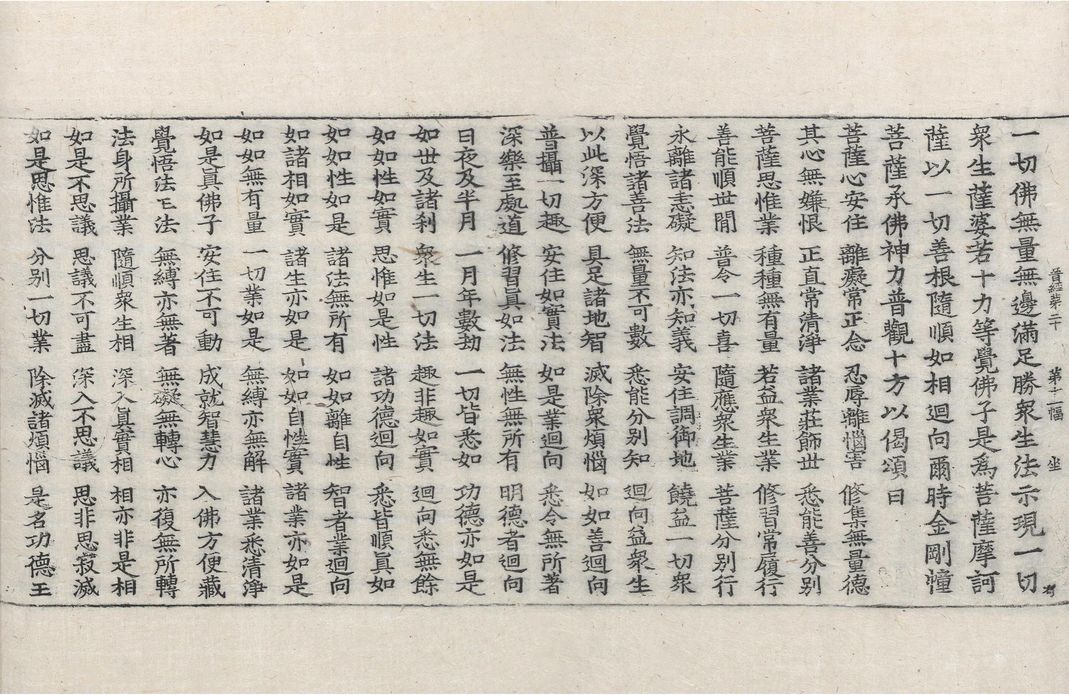 一切佛無量無邊滿足勝衆生法示現一切
晉經第二十 坐
衆生薩婆若十力等覺佛子是爲菩薩摩訶
薩以一切善根隨順如相迴向爾時金剛幢
菩薩承佛神力普觀十方以偈頌曰
菩薩心安住 離癡常正念 忍辱離惱害 修集無量德
其心無嫌恨 正直常清淨 諸業莊飾世 悉能善分別
菩薩思惟業 種種無有量 若益衆生業 修習常願行
善能順世間 普令一切喜 隨應衆生業 菩薩分別行
永離諸恚礙 知法亦知義 安住調御地 饒益一切衆
覺悟諸善法 無量不可數 悉能分別知 迴向益衆生
以此深方便 具足諸地智 滅除衆煩惱 如如善迴向
普攝一切趣 安住如實法 如是業迴向 悉令無所著
深樂至處道 修習眞如法 無性無所有 明德者迴向
日夜及半月 一月年數劫 一切皆悉如 功德亦如是
如世及諸刹 衆生一切法 趣非趣如實 迴向悉無餘
如如性如實 思惟如是性 諸功德迴向 悉皆順眞如
如如性如是 諸法無所有 如如離自性 智者業迴向
如諸相如實 諸生亦如是 如如自性實 諸業亦如是
如如無有量 一切業如是 無縛亦無解 諸業悉清淨
如是眞佛子 安住不可動 成就智慧力 入佛方便藏
覺悟法王法 無縛亦無著 無礙無轉心 亦復無所轉
法身所攝業 隨順衆生相 深入眞實相 相亦非是相
如是不思議 思議不可盡 深入不思議 思非思寂滅
如是思惟法 分別一切業 除滅諸煩惱 是名功德王